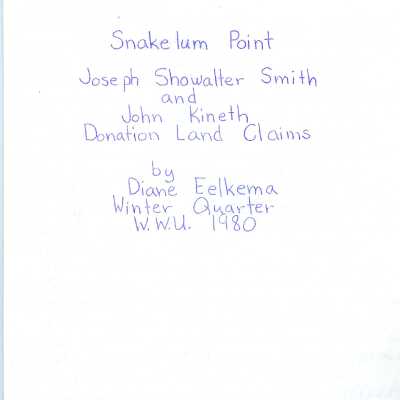 Snakelum Point
Joseph Showalter Smith
and
John Kineth
Donation Land Claims
by
Diane Eelkema
Winter Quarter
W.W.U. 1980